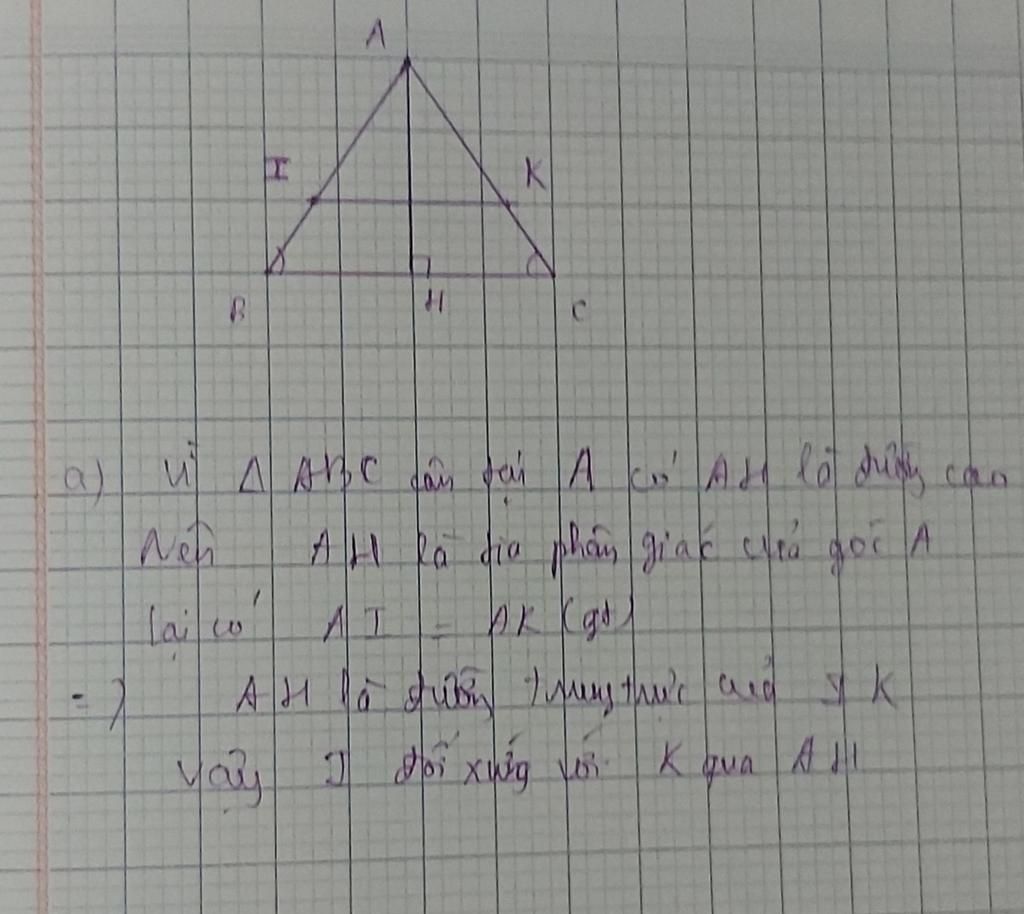 A
I
K
B
H
C
a) Vì Δ ABC cân tại A có AH là đường cao
Nên AH là tia phân giác của góc A
lại có AI = AK (gt)
=> AH là đường trung trực của IK
Vậy I đối xứng với K qua AH